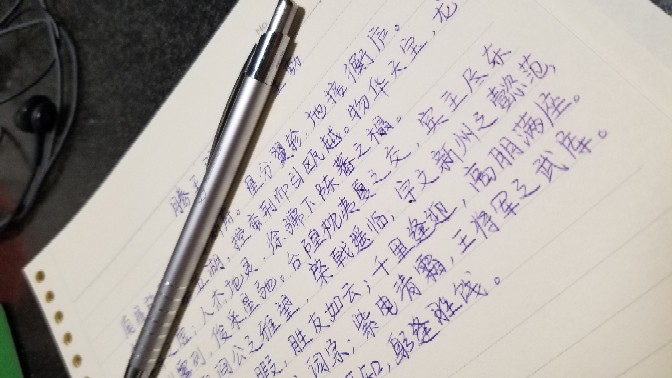 滕王
勃
星分翼轸,地接衡庐。
江湖,控蛮荆而引瓯越。物华天宝,龙
之墟;人杰地灵,徐孺下陈蕃之榻。
雾列,俊采星驰。台隍枕夷夏之交,宾主尽东
阎公之雅望,棨戟遥临;宇文新州之懿范,
暇,胜友如云;千里逢迎,高朋满座。
词宗;紫电青霜,王将军之武库。
知,躬逢胜饯。